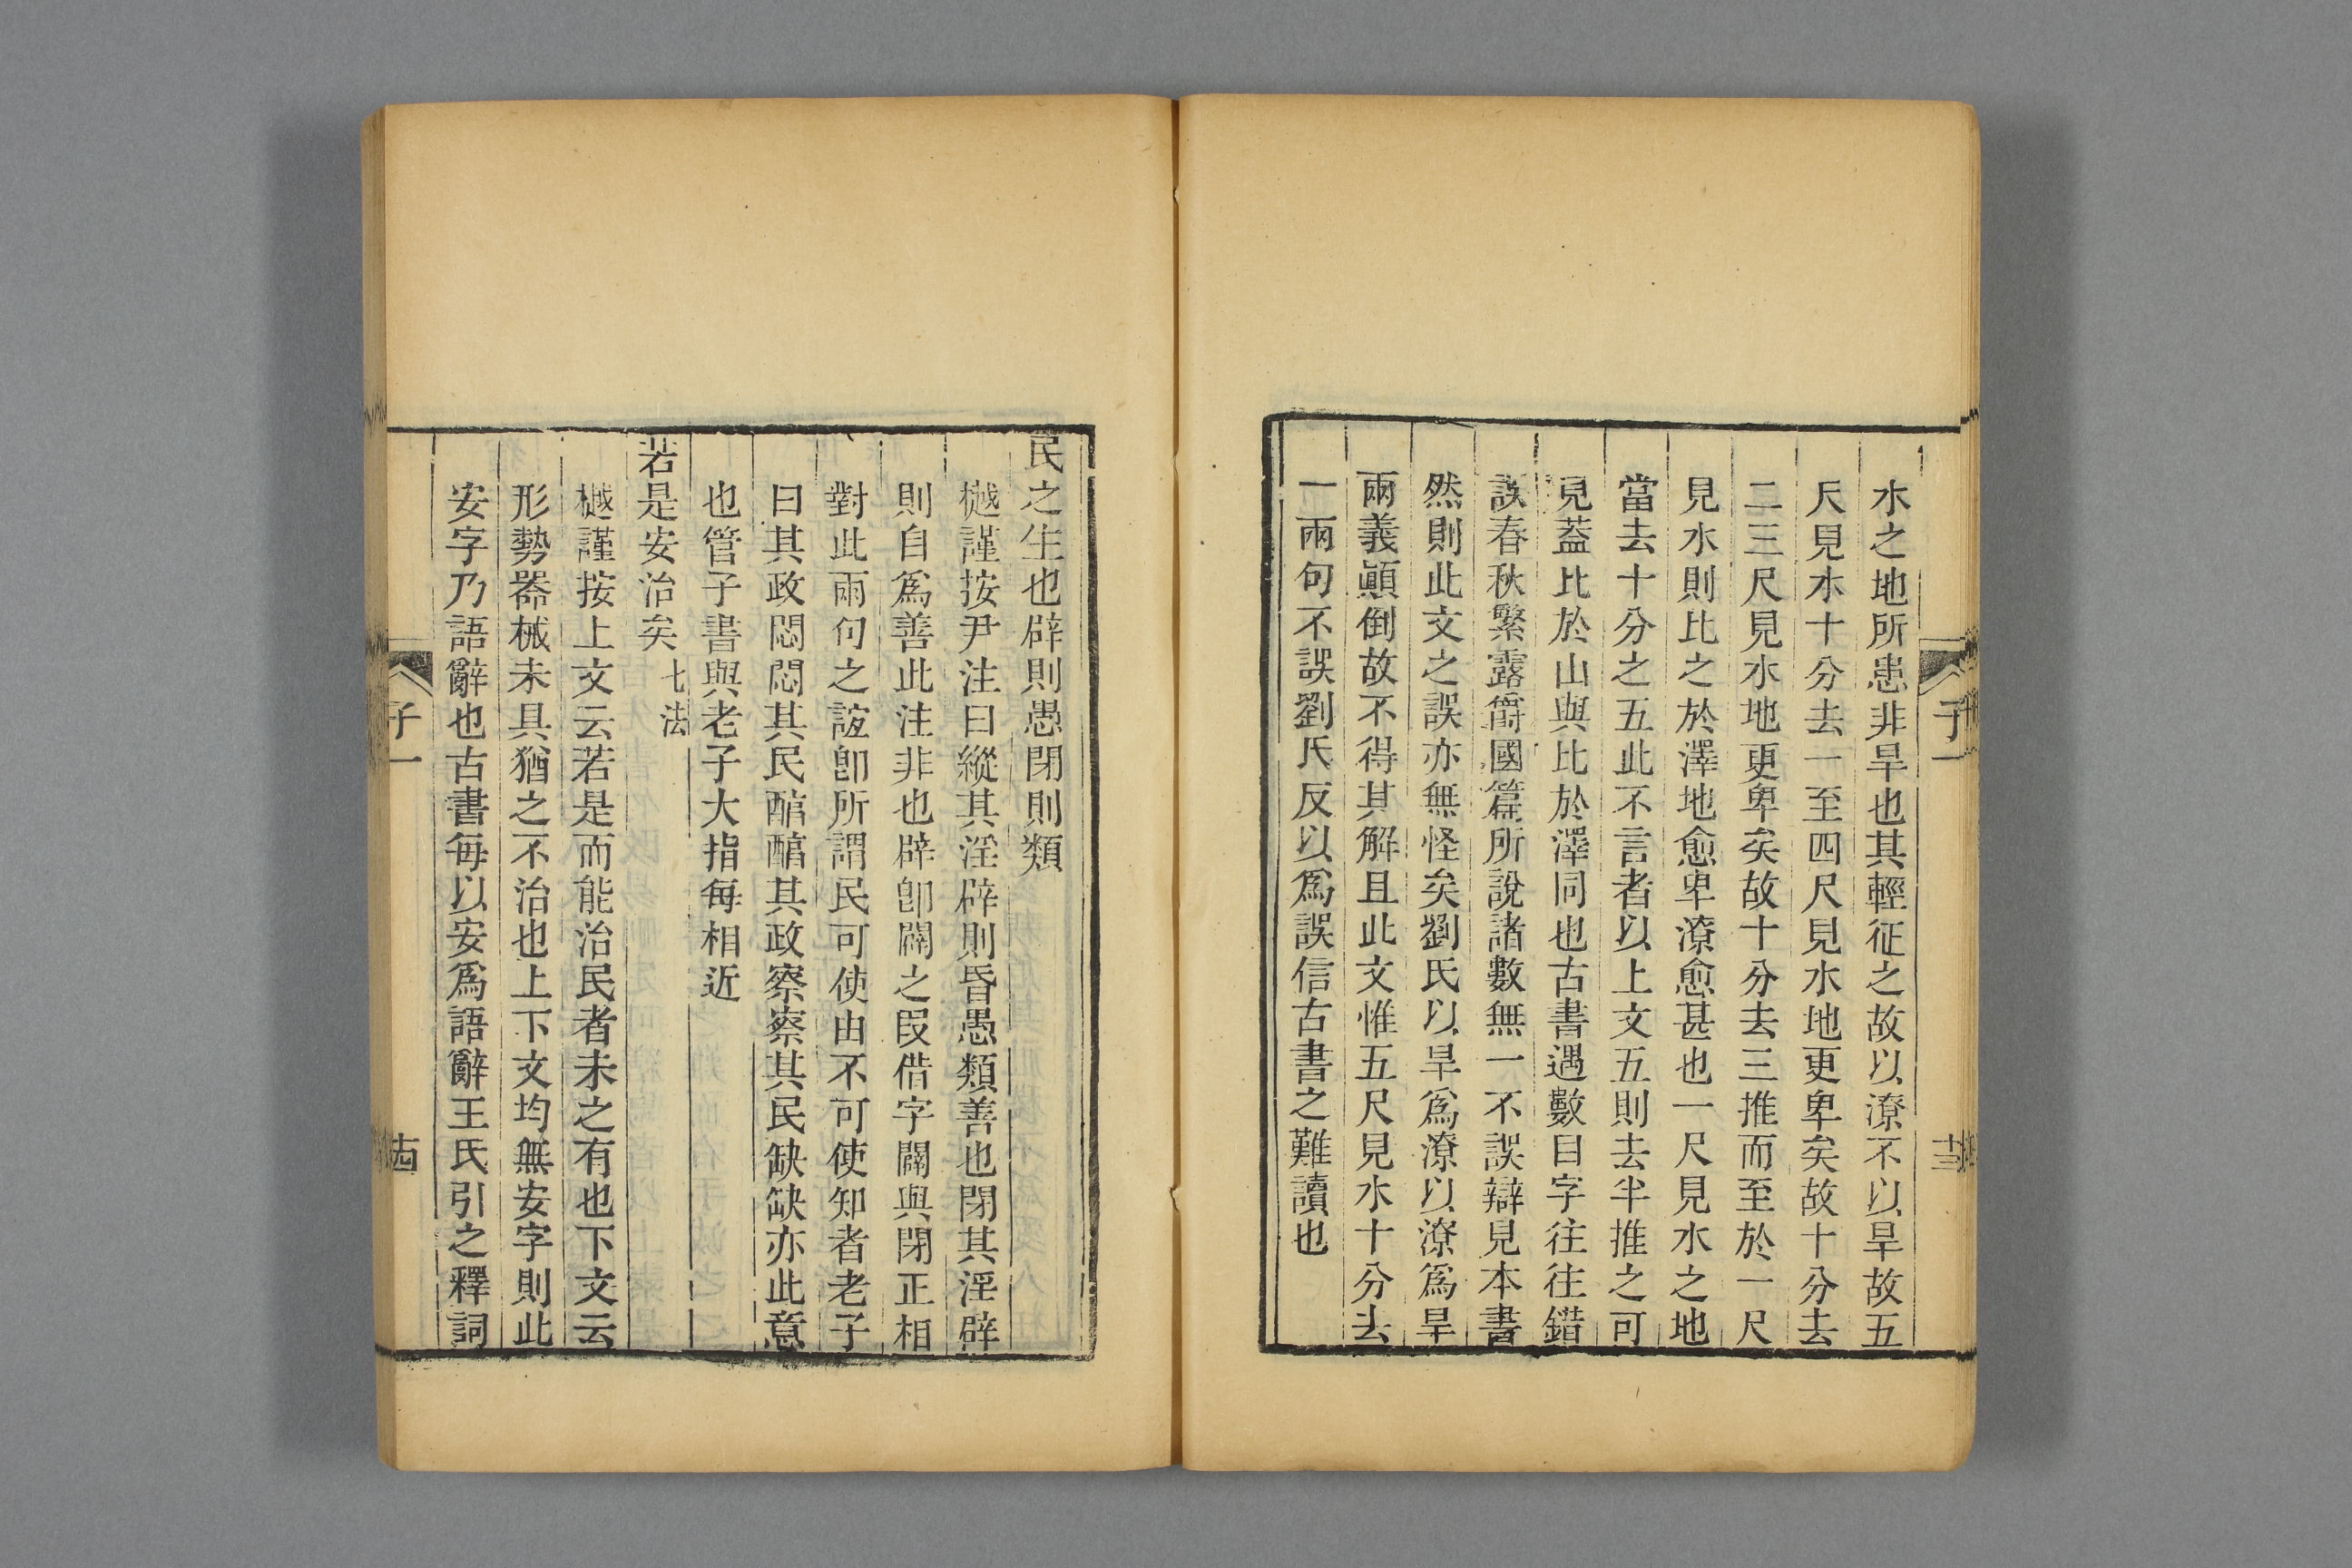 水之地所患非旱也其輕征之故以潦不以旱故五
尺見水十分去一至四尺見水地更卑矣故十分去
二三尺見水地更卑矣故十分去三推而至於一尺
見水則比之於澤地愈卑潦愈甚也一尺見水之地
當去十分之五此不言者以上文五則去半推之可
見葢比於山與比於澤同也古書遇數目字往往錯
誤春秋繁露爵國篇所說諸數無一不誤辯見本書
然則此文之誤亦無怪矣劉氏以旱爲潦以潦爲旱
兩義顚倒故不得其解且此文惟五尺見水十分去
一兩句不誤劉氏反以爲誤信古書之難讀也
子一
十三
民之生也辟則愚閉則類
樾謹按尹注曰縱其淫辟則昏愚類善也閉其淫辟
則自爲善此注非也辟卽闢之叚借字闢與閉正相
對此兩句之誼卽所謂民可使由不可使知者老子
曰其政悶悶其民醕醕其政察察其民缺缺亦此意
也管子書與老子大指每相近
若是安治矣 七法
樾謹按上文云若是而能治民者未之有也下文云
形勢器械未具猶之不治也上下文均無安字則此
安字乃語辭也古書每以安爲語辭王氏引之釋詞
子一
十四